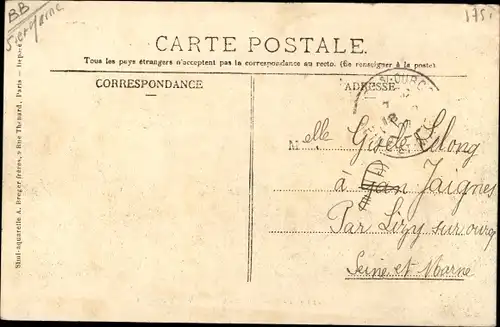 BB
Seine Marne
175
CARTE POSTALE.
Tous les pays étrangers n'acceptent pas la correspondance au recto. (Se renseigner à la poste).
CORRESPONDANCE
ADRESSE
S/OURCQ
Melle Gisèle
à Jaignes
Par Lizy sur ourcq
Seine et Marne
Simi-aquarelle A. Breger frères, 9 Rue Thénard, Paris